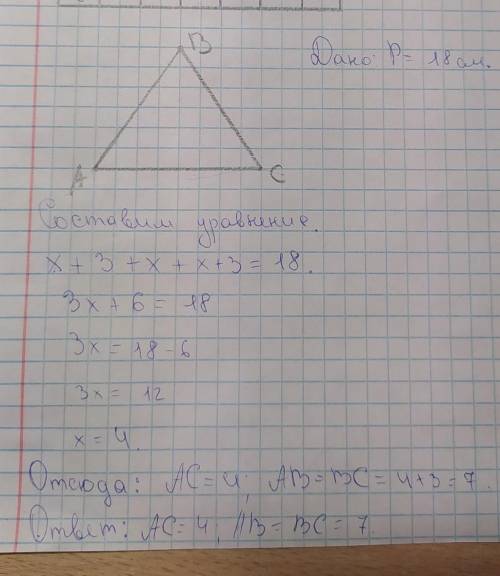 B
Дано: P = 18 см.
A
C
Составим уравнение.
x + 3 + x + x + 3 = 18.
3x + 6 = 18
3x = 18 - 6
3x = 12
x = 4.
Отсюда: AC = 4; AB = BC = 4+3 = 7.
Ответ: AC = 4; AB = BC = 7.